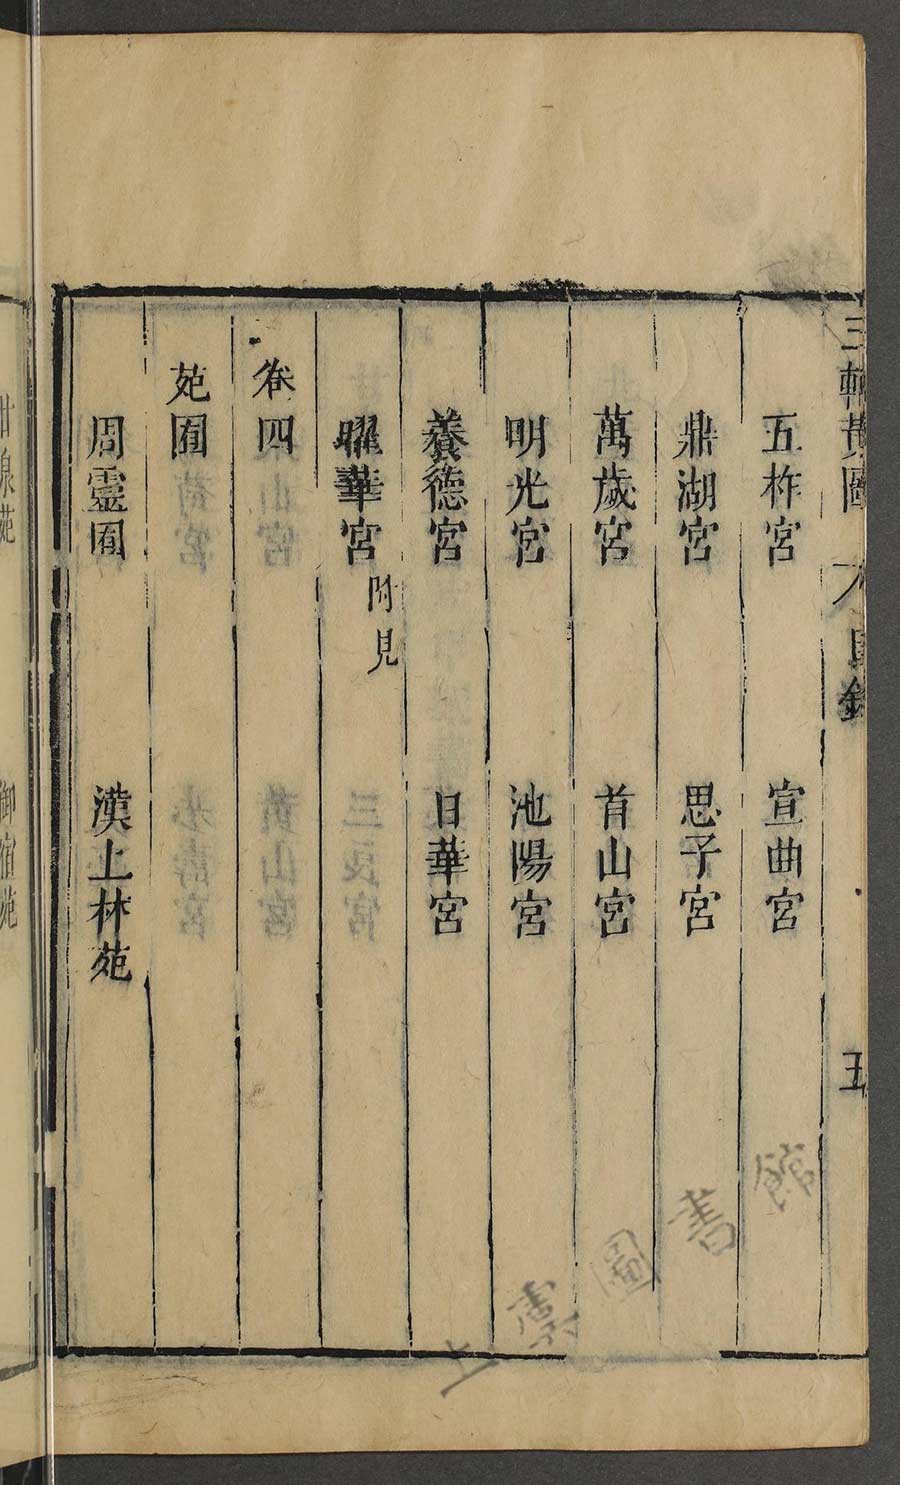 三輔黃圖
目錄
五
五柞宮 宣曲宮
鼎湖宮 思子宮
萬歲宮 首山宮
明光宮 池陽宮
養德宮 日華宮
曜華宮附見
卷四
苑囿
周靈囿 漢上林苑
甘泉苑 御宿苑
上虞圖書館